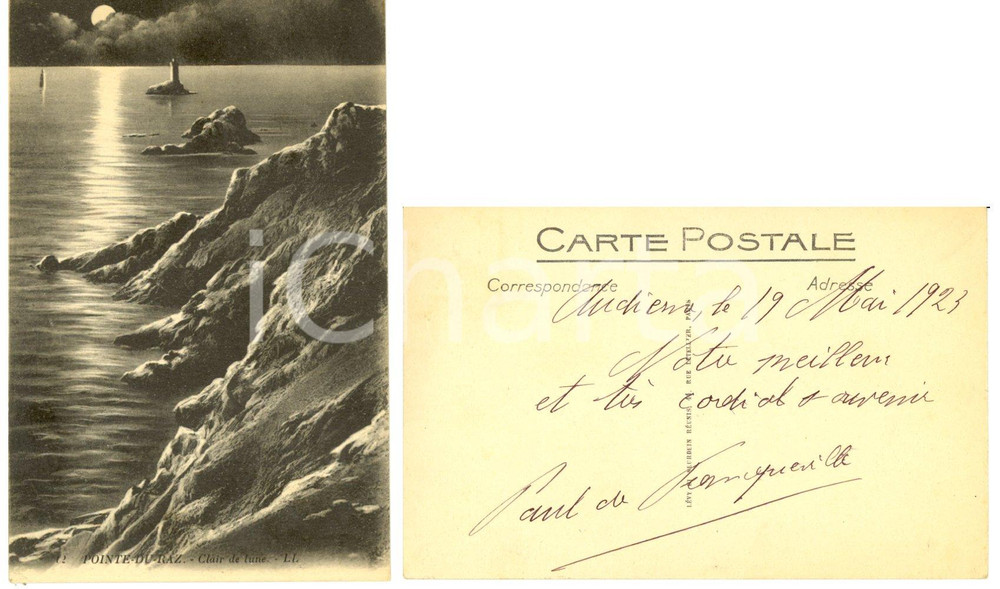 12 POINTE-DU-RAZ. - Clair de lune. - LL.
CARTE POSTALE
Correspondance
Adresse
Audierne, le 19 Mai 1923
Notre meilleur
et très cordial souvenir
Paul de
LÉVY ET NEURDEIN RÉUNIS, 44, RUE LETELLIER, PARIS
iCharta